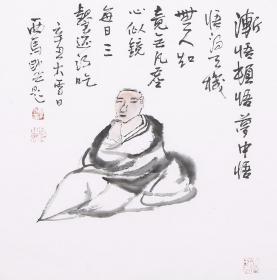 漸悟頓悟夢中悟
悟得天機
無人知
竟無凡塵
心似鏡
每日三
餐還得吃
辛丑大雪日